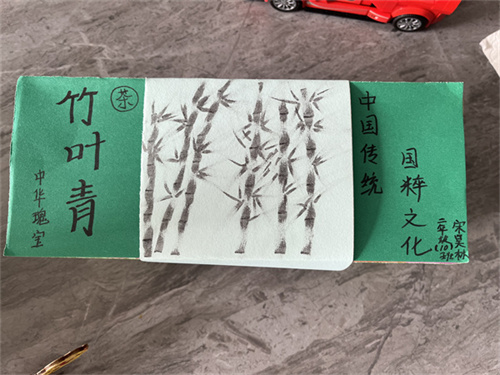 竹叶青
茶
中华瑰宝
中国传统
国粹文化
二年级(10)班
宋昊林